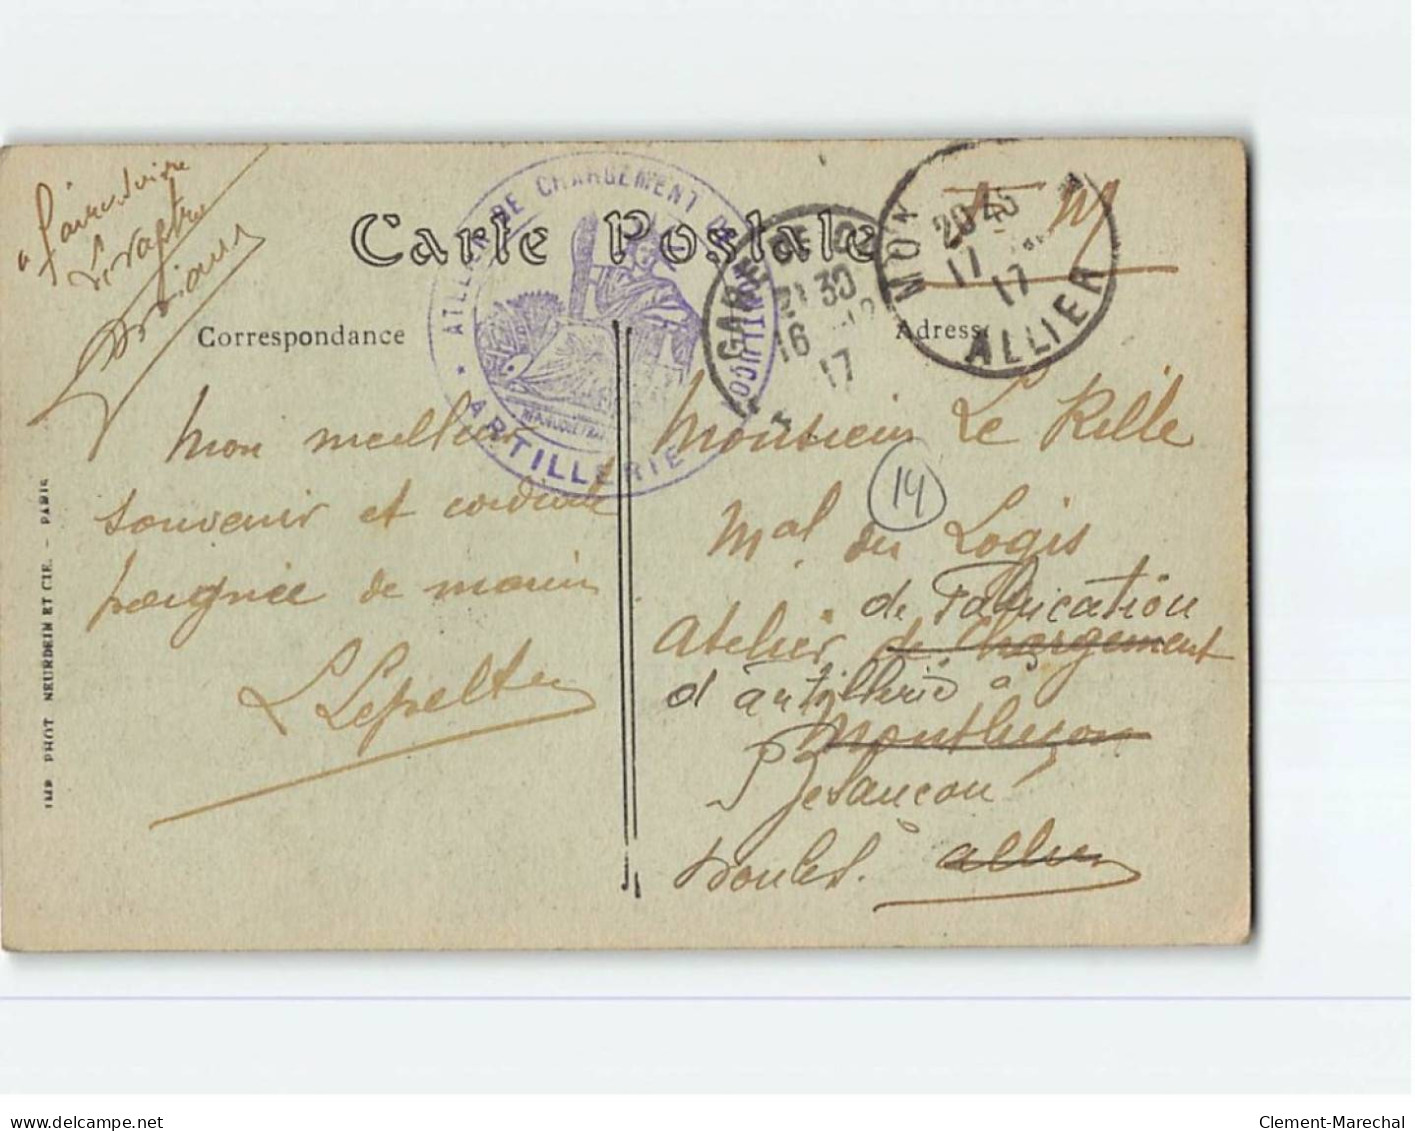 à faire suivre
Carte Postale
F. M
ATELIER DE CHARGEMENT DE MONTLUÇON
* ARTILLERIE
RÉPUBLIQUE FRANÇAISE
GARE DE
21 30
16
17
MON
20 45
17
17
ALLIER
Correspondance
Adresse
Mon meilleur
souvenir et cordiale
poignée de main
L Lepelte
Monsieur Le Rille
14
Mal des Logis
de Fabrication
Atelier de Chargement
d'artillerie à
Montluçon
Besançon
Doubs. Allier
IMP. PHOT. NEURDEIN ET CIE. - PARIS
delcampe.net
Clement-Marechal